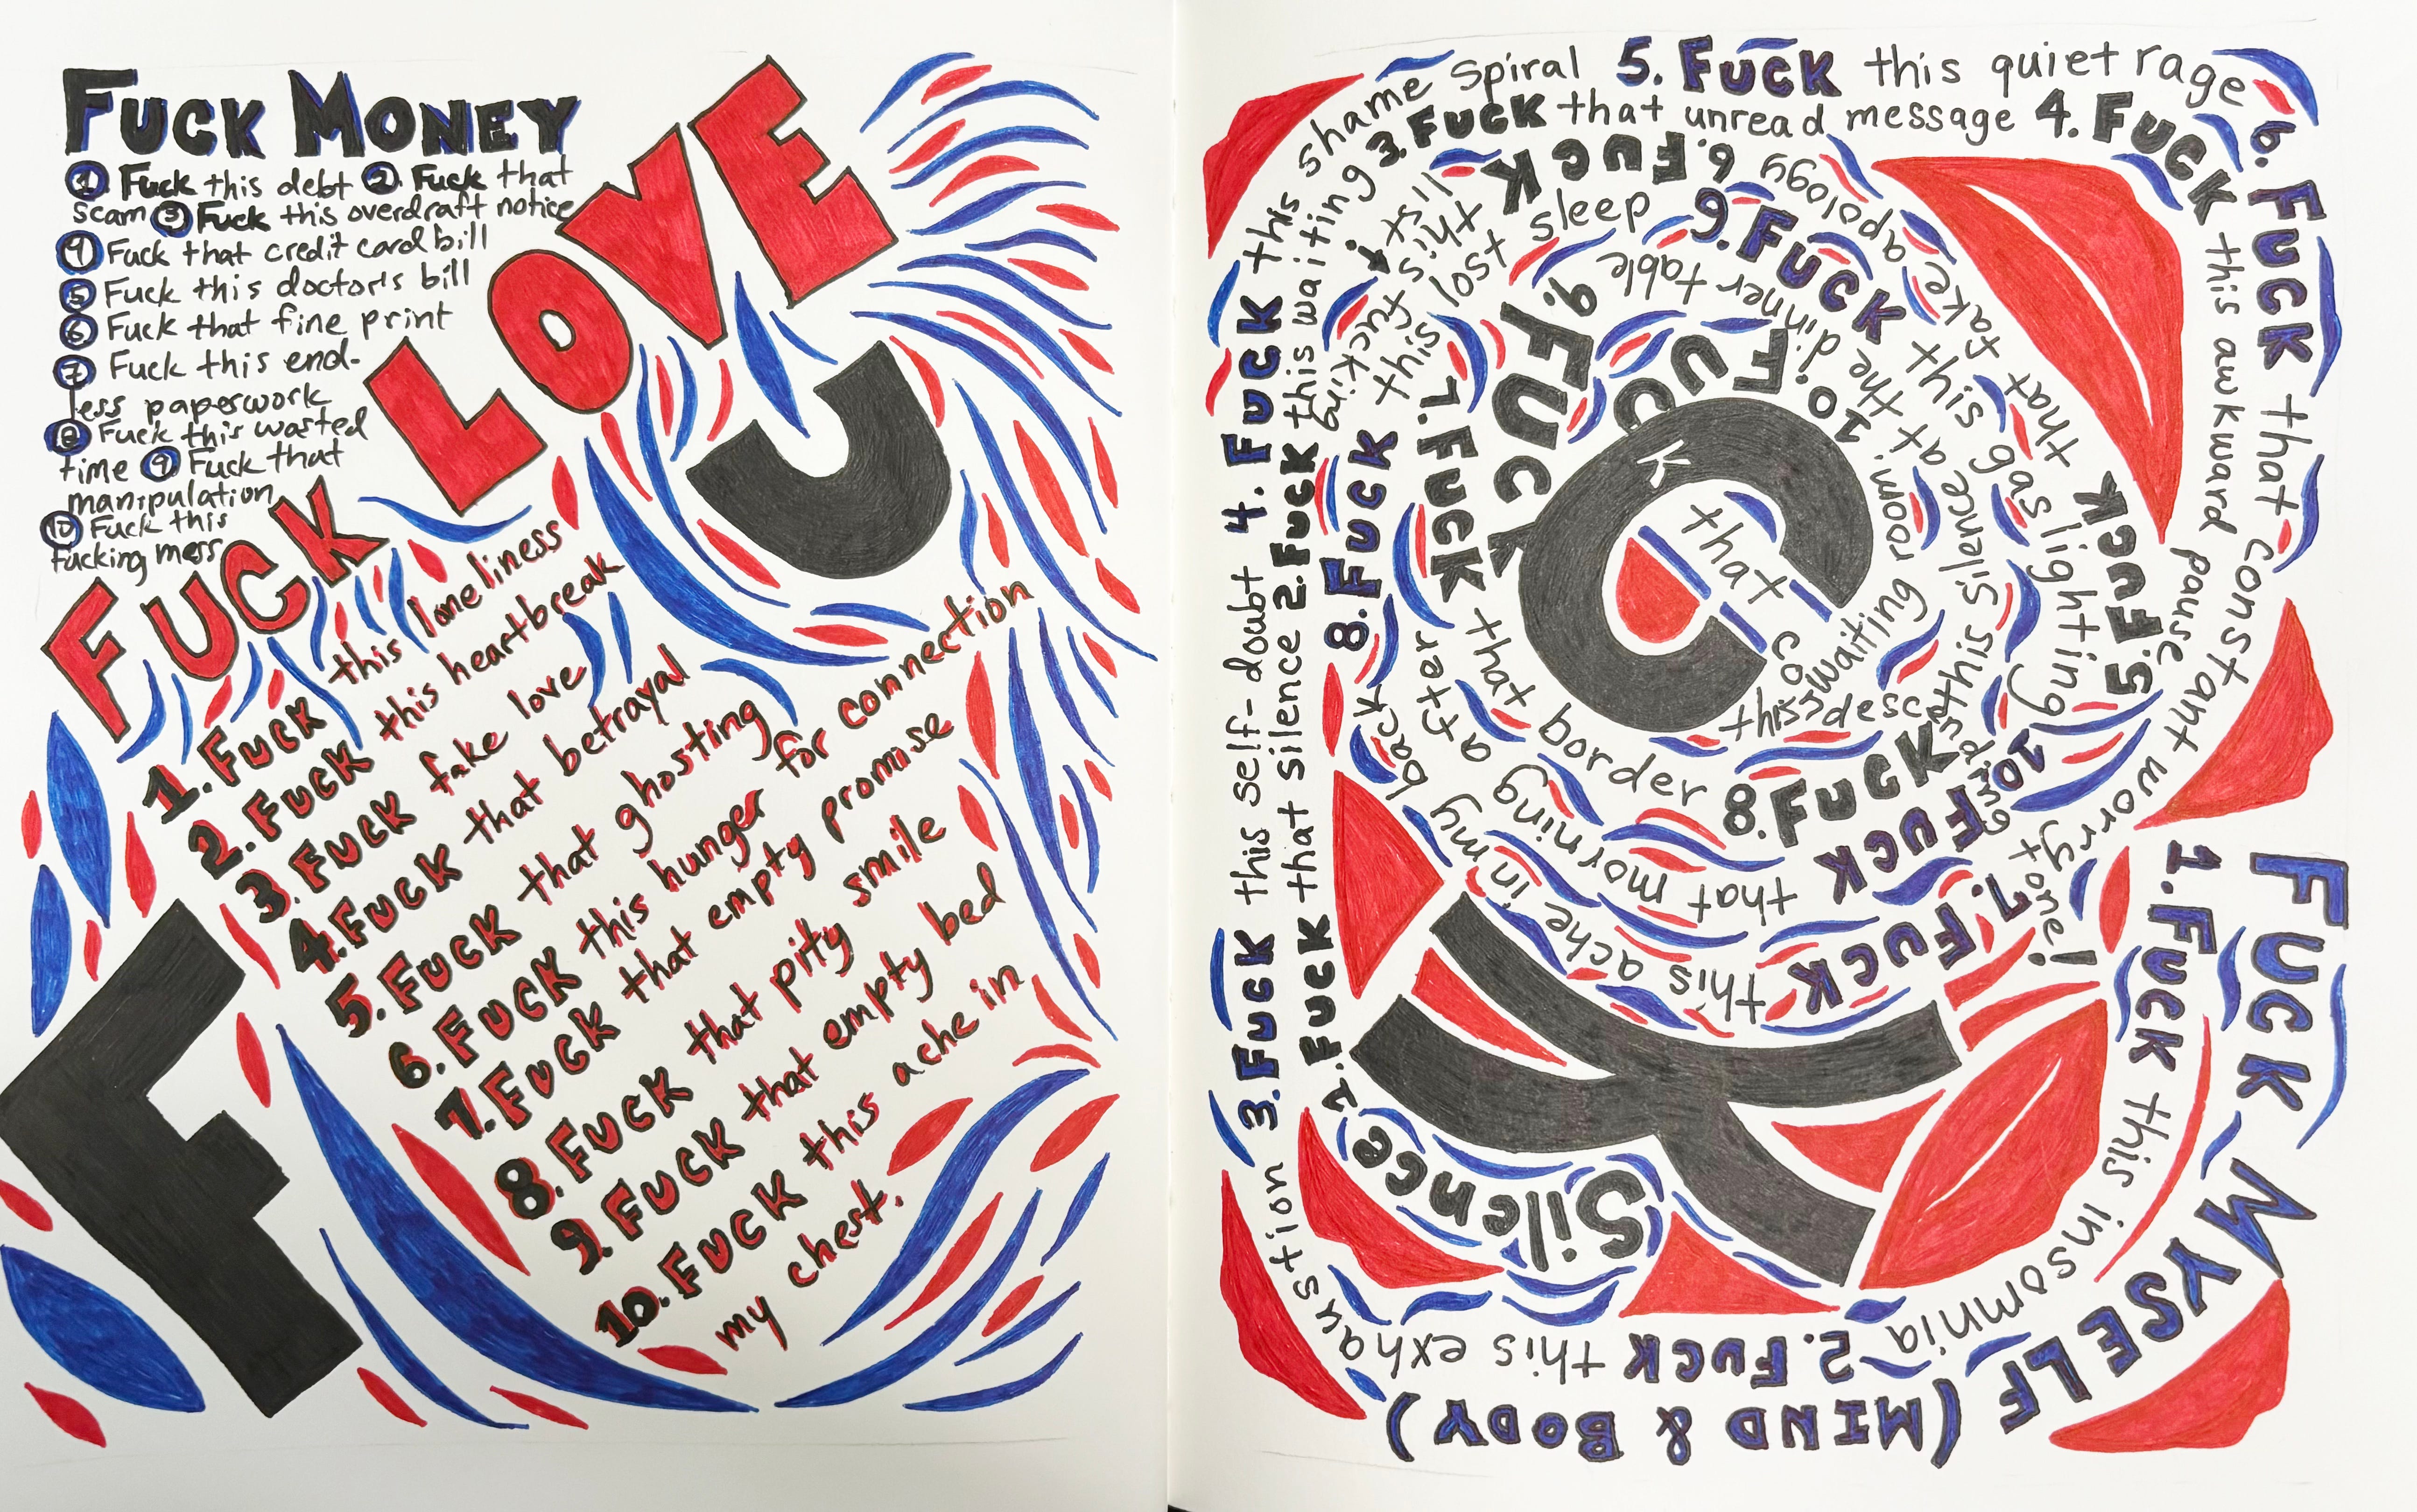 FUCK MONEY
1 Fuck this debt 2. Fuck that
scam 3 Fuck this overdraft notice
4 Fuck that credit card bill
5 Fuck this doctor's bill
6 Fuck that fine print
7 Fuck this end-
less paperwork
8 Fuck this wasted
time 9 Fuck that
manipulation
10 Fuck this
fucking mess
FUCK LOVE
1. FUCK this loneliness
2. FUCK this heartbreak
3. FUCK fake love
4. FUCK that betrayal
5. FUCK that ghosting
6. FUCK this hunger for connection
7. FUCK that empty promise
8. FUCK that pity smile
9. FUCK that empty bed
10. FUCK this ache in
my chest.
F
U
C
K
FUCK MYSELF (MIND & BODY)
1. FUCK this insomnia
2. FUCK this exhaustion
3. FUCK this self-doubt
4. FUCK this shame spiral
5. FUCK this quiet rage
6. FUCK that constant worry
7. FUCK this ache in my back
8. FUCK this lost sleep
9. FUCK this gas lighting
10 FUCK that morning after
Silence
1. FUCK that silence
2. FUCK this waiting
3. FUCK that unread message
4. FUCK this awkward pause
5. FUCK that fake apology
6. FUCK this fucking list
7. FUCK that border
8. FUCK this silence at the dinner table
9. FUCK this waiting room
10. FUCK that condescending tone!